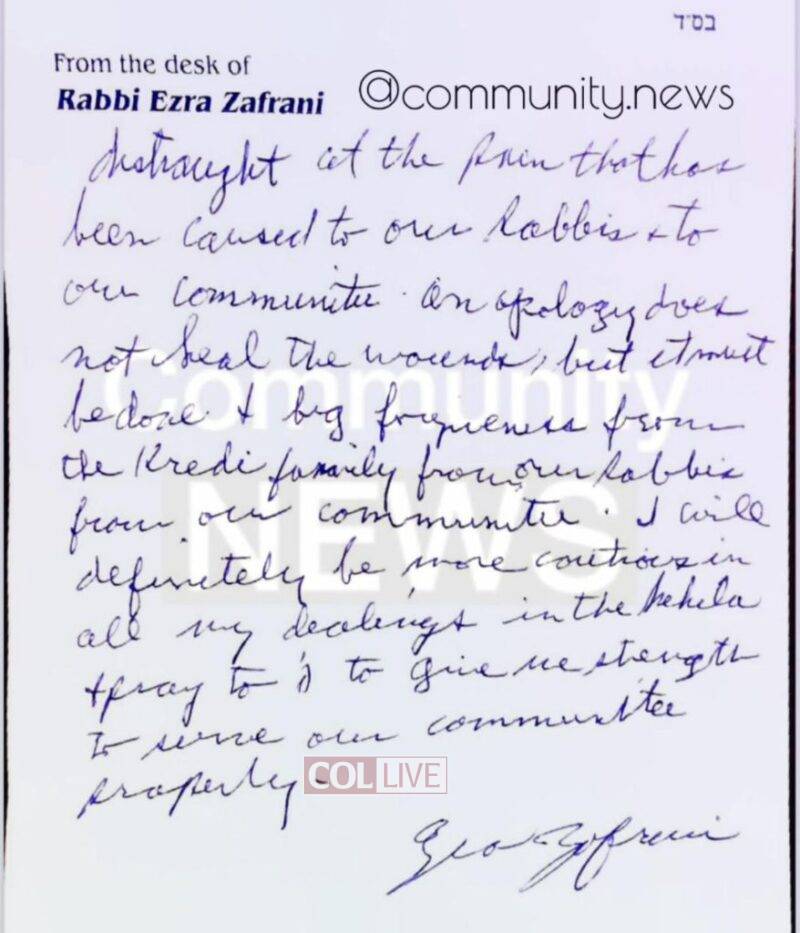 בס"ד
From the desk of
Rabbi Ezra Zafrani
@community.news
distraught at the pain that has
been caused to our Rabbis & to
our communitee. An apology does
not heal the wounds, but it must
be done & beg forgiveness from
the Kredi family from our Rabbis
from our communitee. I will
definitely be more coutious in
all my dealings in the kehela
& pray to ה' to give me strength
to serve our communitee
properly.
Community
NEWS
COL LIVE
Ezra Zafrani